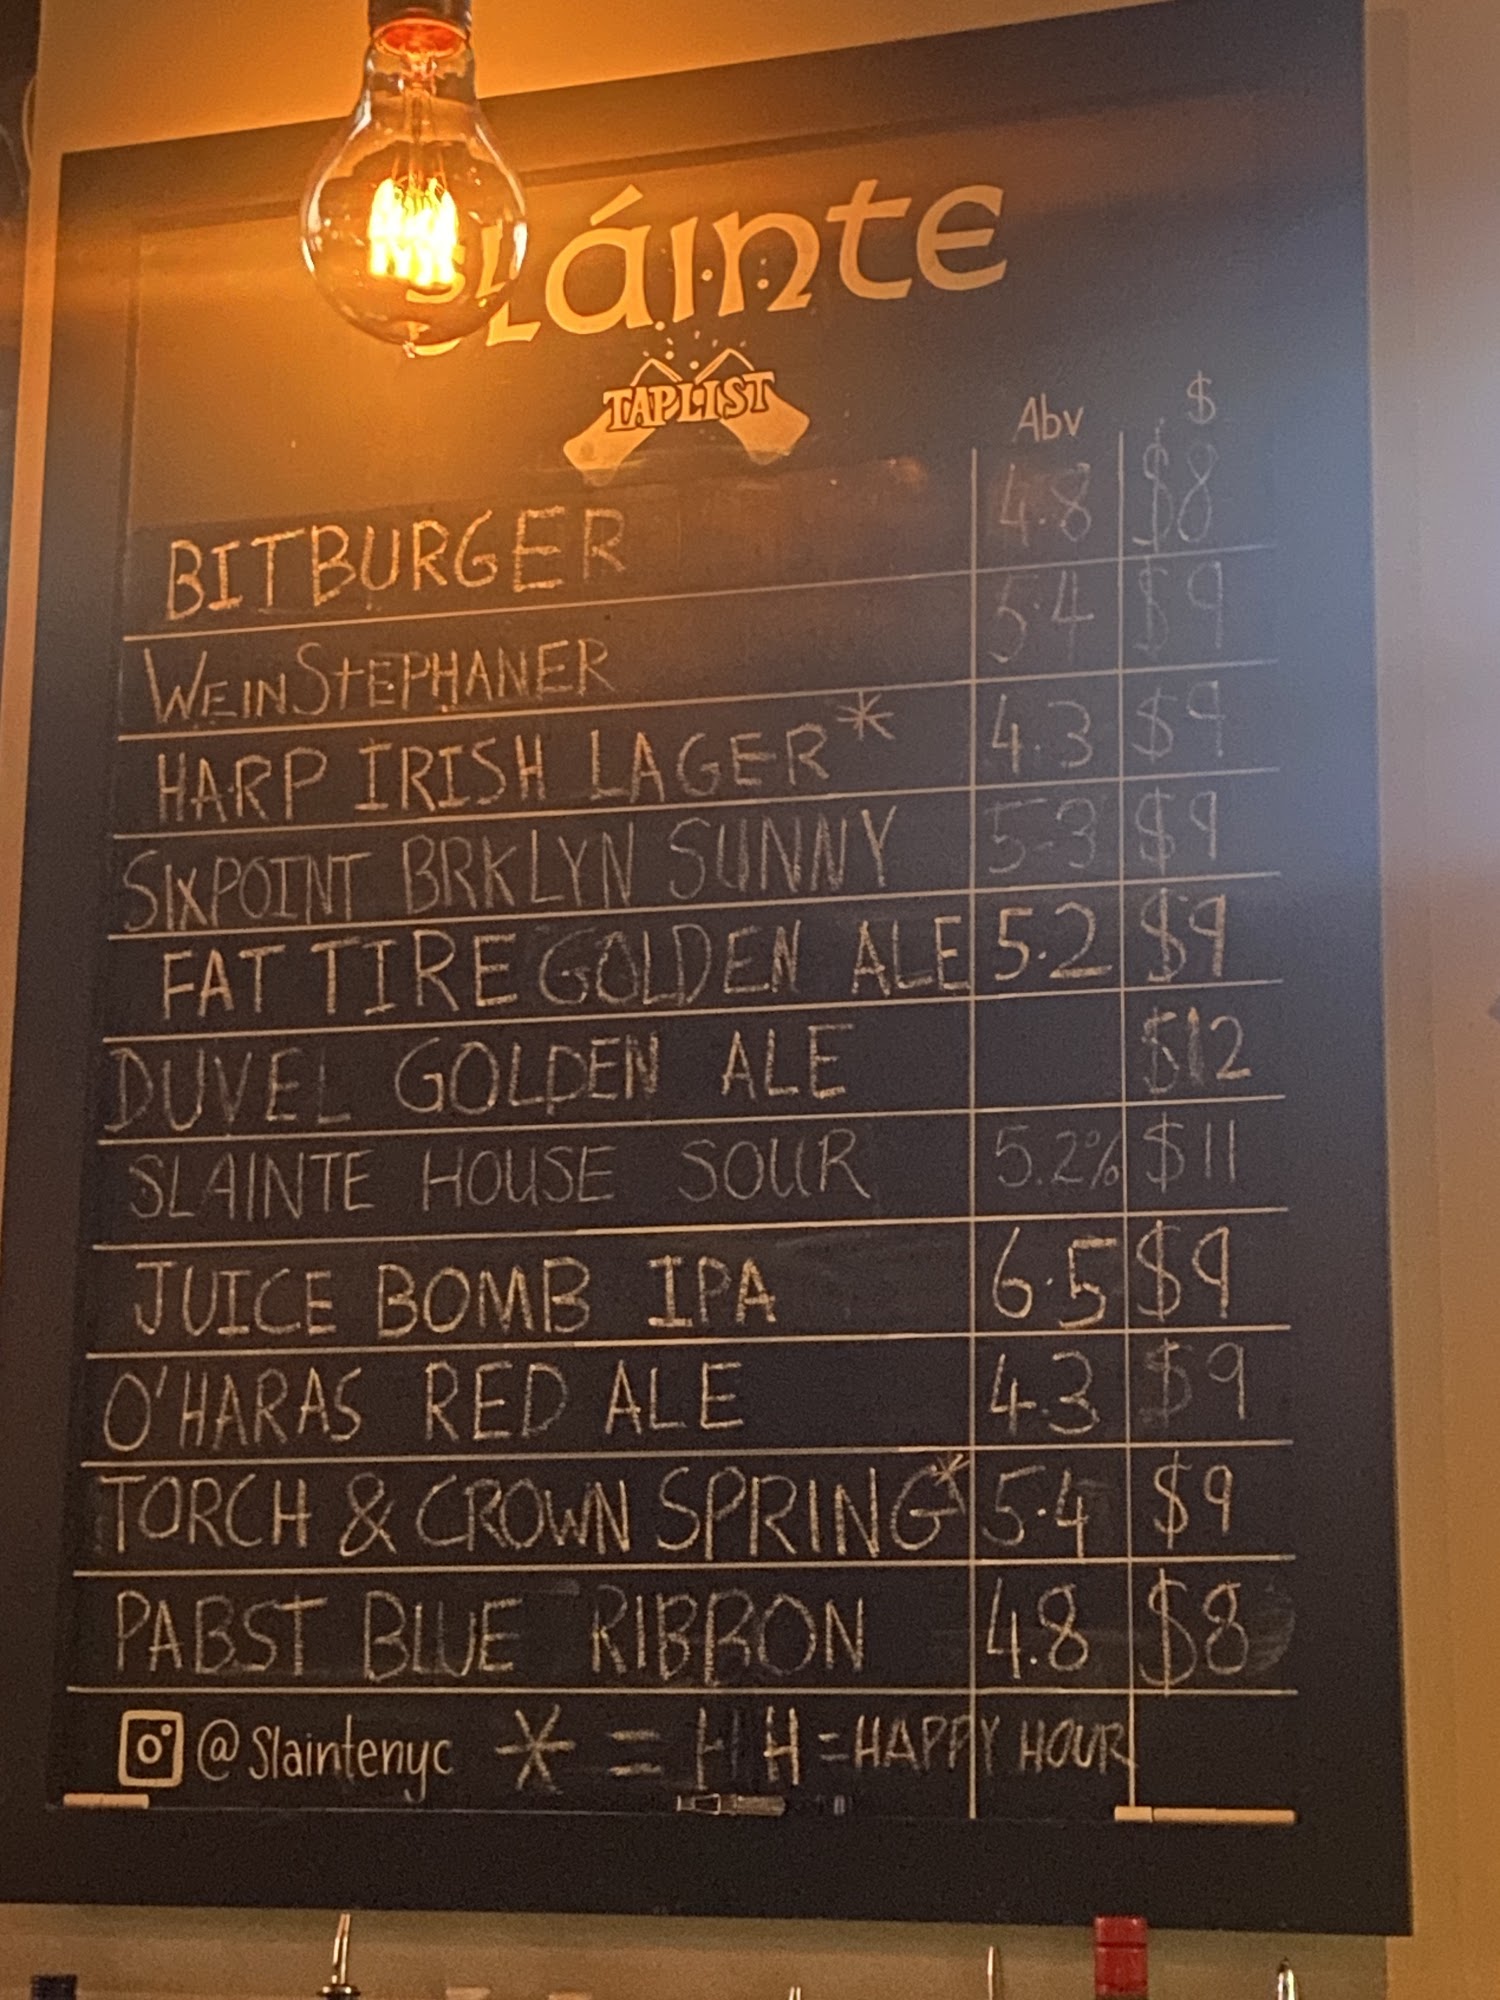 Sláinte
TAPLIST
Abv $
BITBURGER 4.8 $8
WEINSTEPHANER 5.4 $9
HARP IRISH LAGER* 4.3 $9
SIXPOINT BRKLYN SUNNY 5.3 $9
FAT TIRE GOLDEN ALE 5.2 $9
DUVEL GOLDEN ALE $12
SLAINTE HOUSE SOUR 5.2% $11
JUICE BOMB IPA 6.5 $9
O'HARAS RED ALE 4.3 $9
TORCH & CROWN SPRING* 5.4 $9
PABST BLUE RIBBON 4.8 $8
@Slaintenyc * = HH = HAPPY HOUR